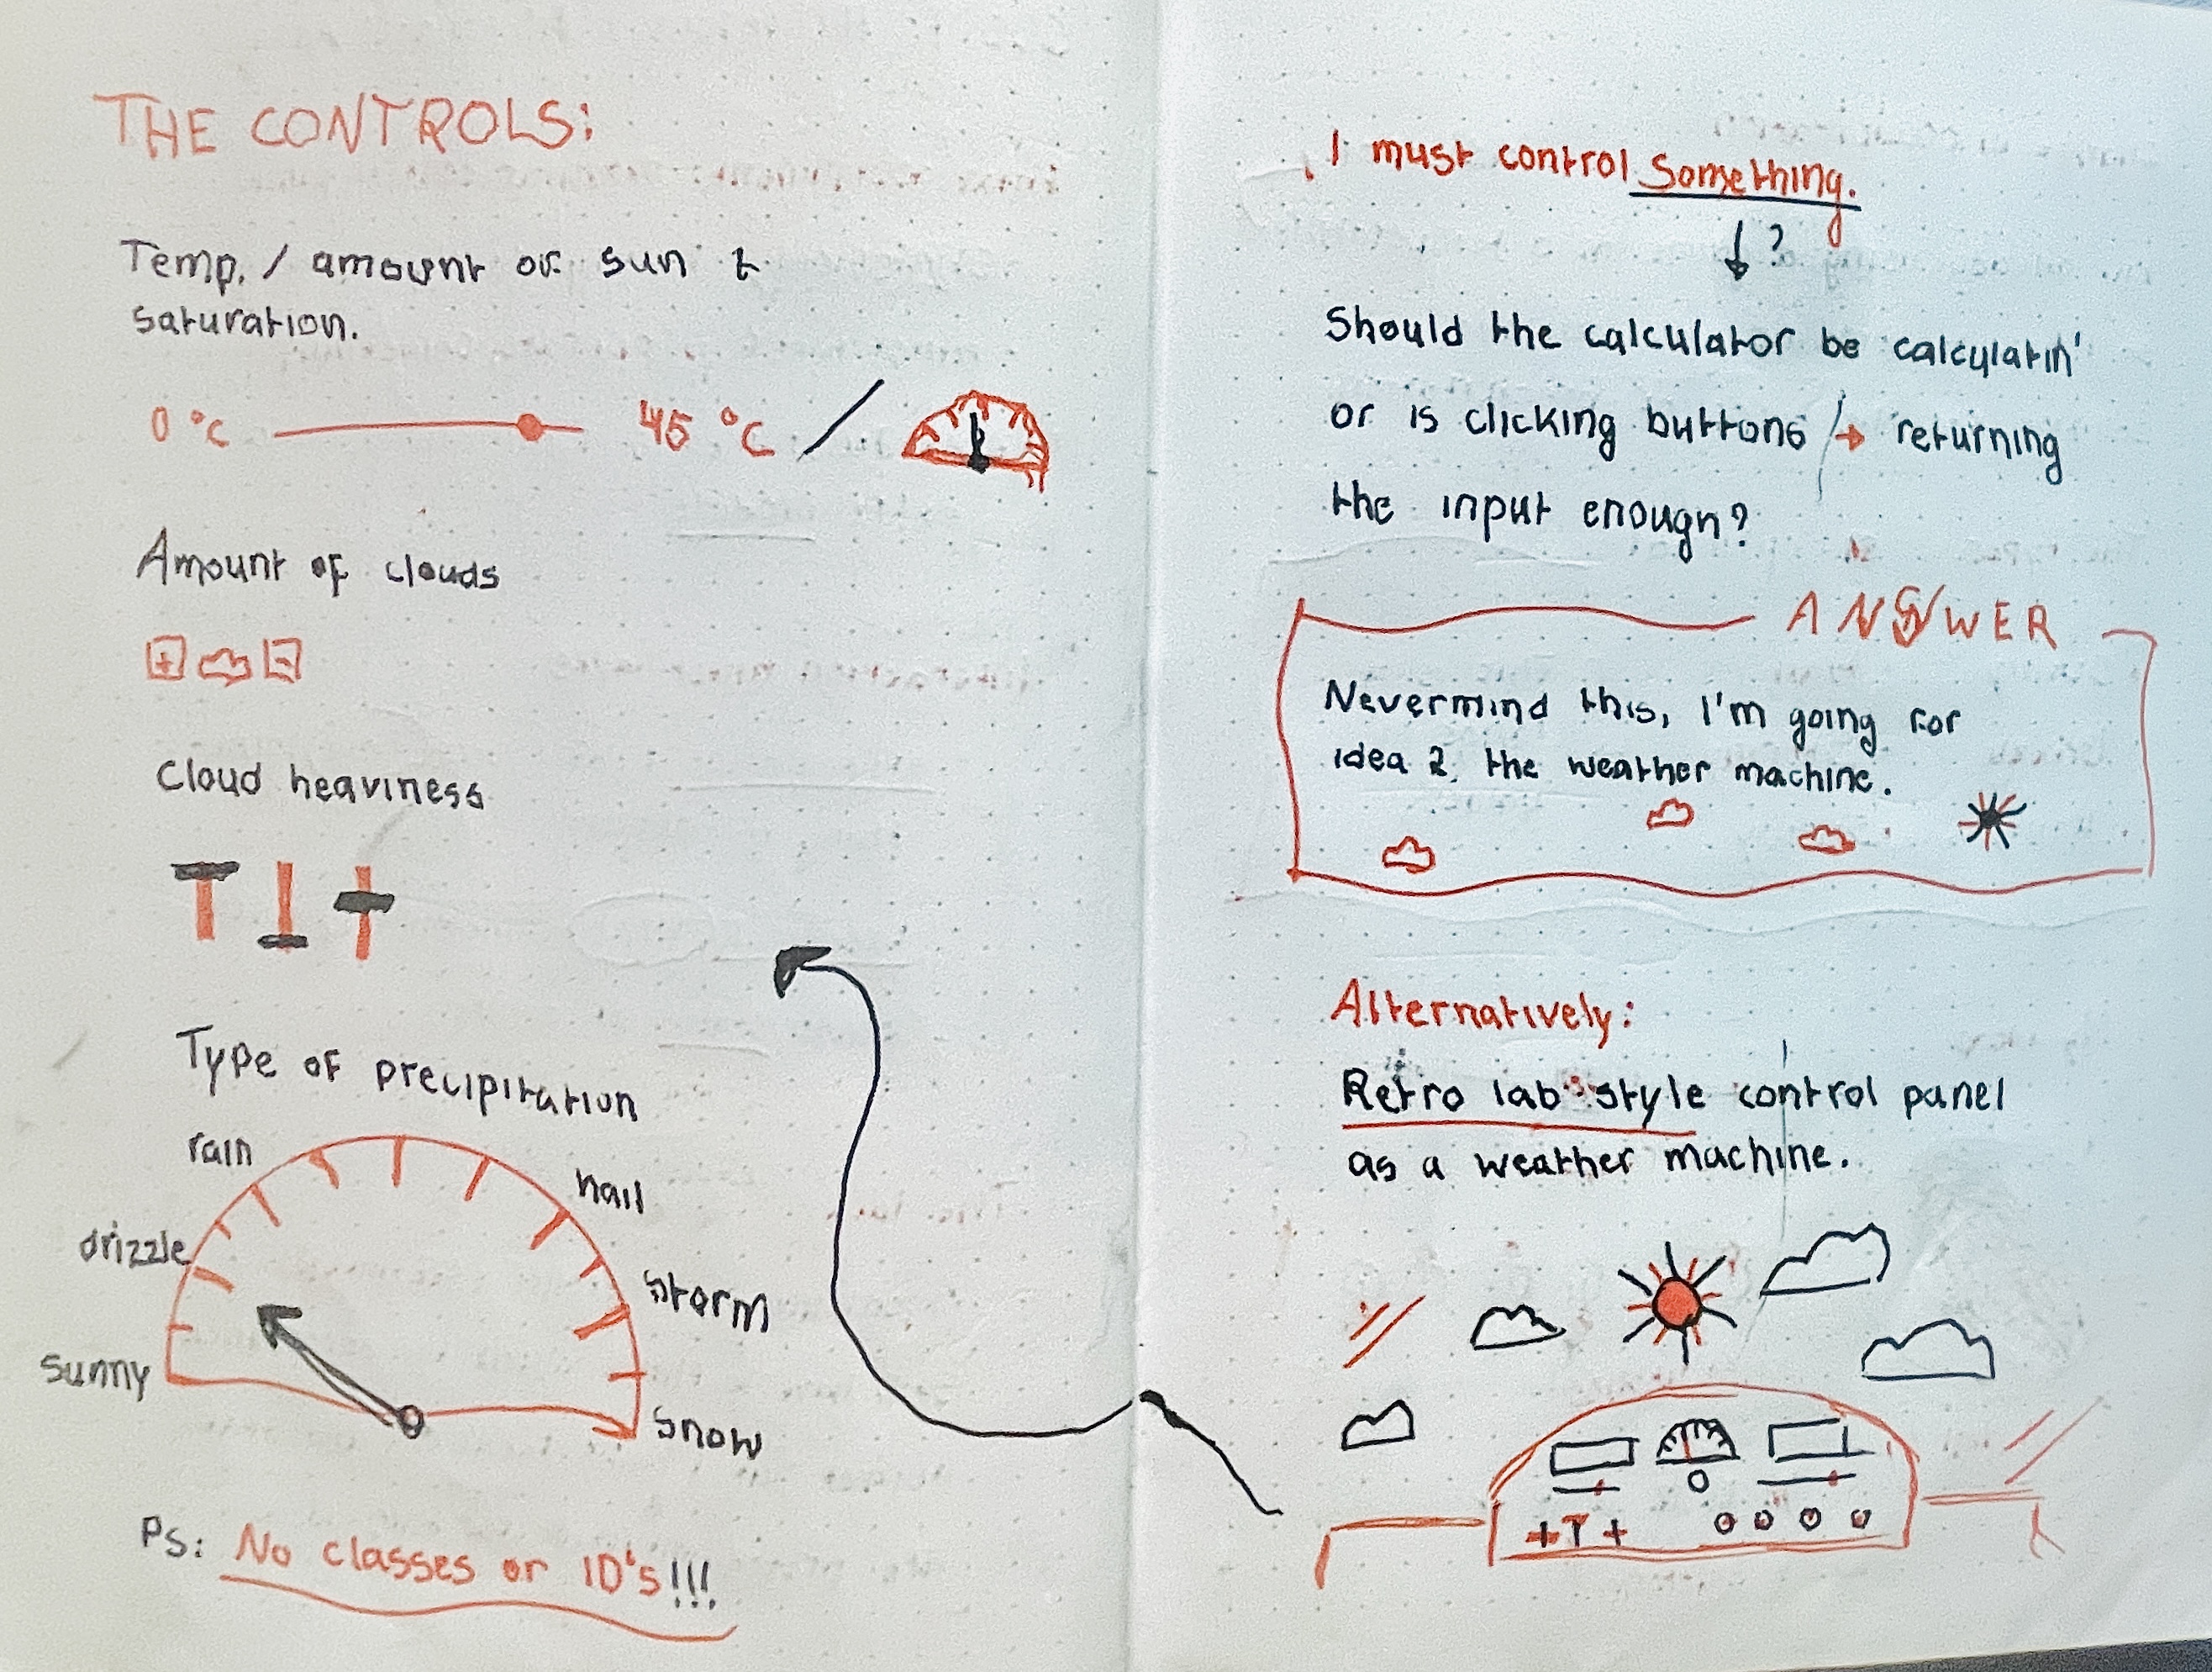 THE CONTROLS:
Temp. / amount of sun &
saturation.
0 °C 45 °C /
Amount of clouds
+ -
Cloud heaviness
Type of precipitation
rain
hail
drizzle
storm
sunny
snow
PS: No classes or ID's!!!
I must control something.
?
Should the calculator be calculatin'
or is clicking buttons / → returning
the input enough?
ANSWER
Nevermind this, I'm going for
idea 2. the weather machine.
Alternatively:
Retro lab style control panel
as a weather machine.